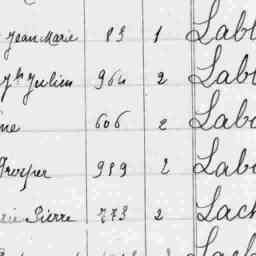 Jean Marie 83 1 Labl
Julien 964 2 Lab
606 2 Labo
Prosper 989 2 Labo
Pierre 773 2 Lach